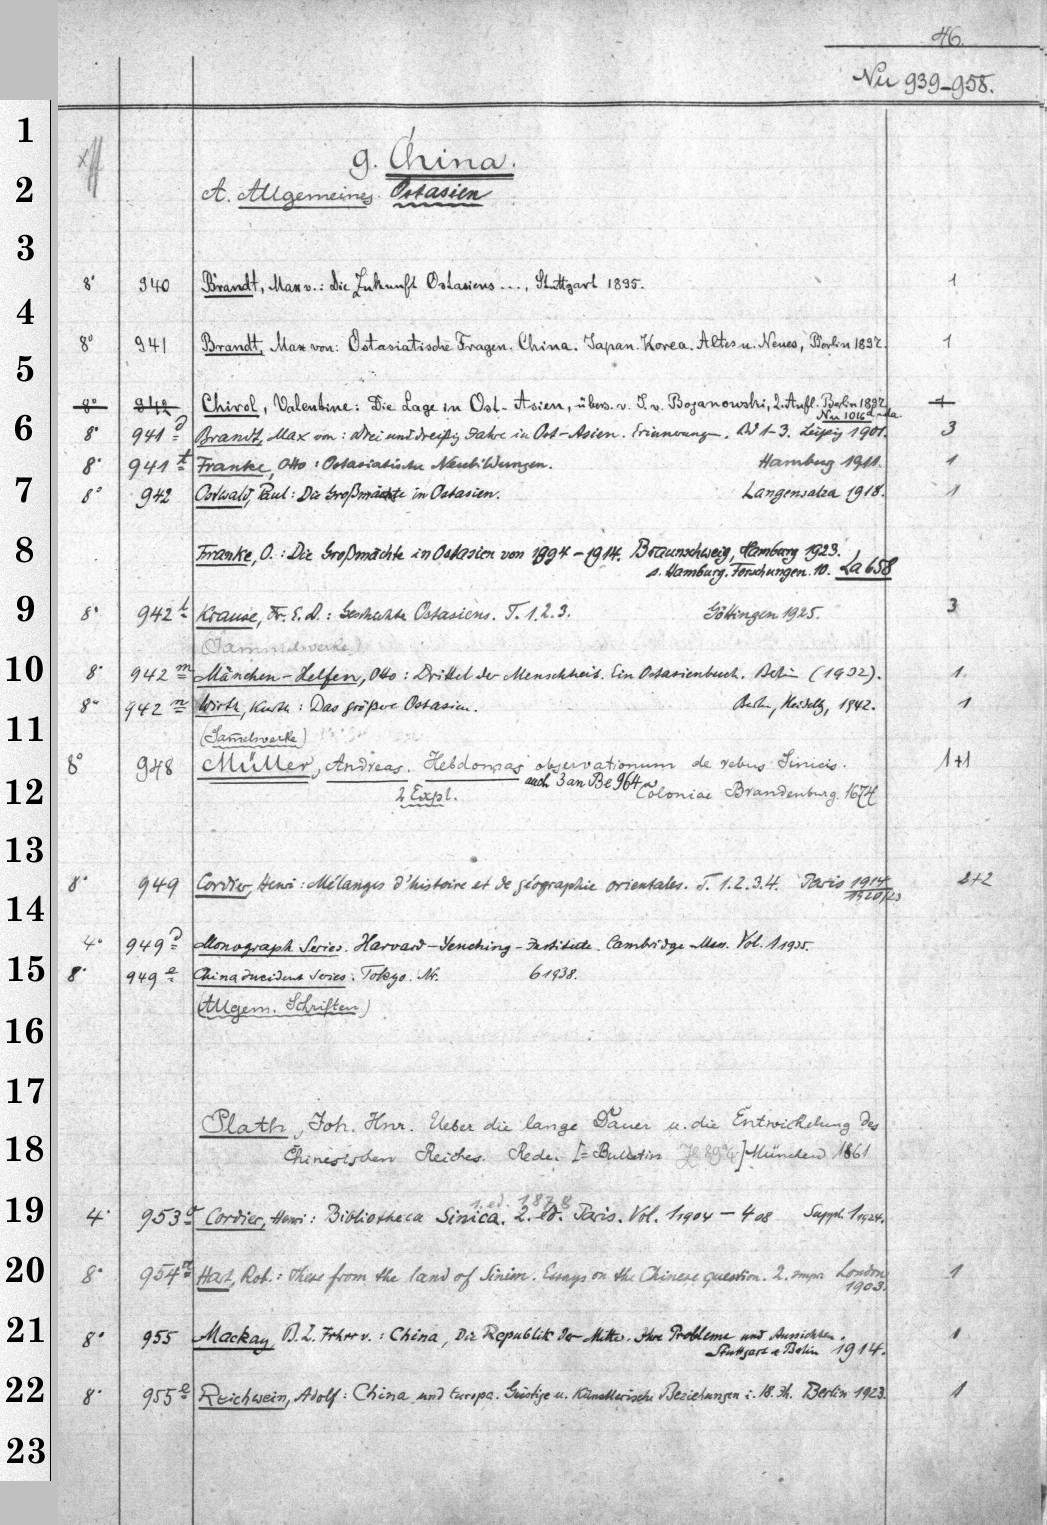 46.
Nu 939-958.
1
g. China.
2
A. Allgemeines. Ostasien
3
8° 940 Brandt, Max v.: Die Zukunft Ostasiens ..., Stuttgart 1895. 1
4
8° 941 Brandt, Max von: Ostasiatische Fragen. China. Japan. Korea. Altes u. Neues, Berlin 1897. 1
5
8° 942 Chirol, Valentine: Die Lage in Ost-Asien, übers. v. J. v. Bojanowski, 2. Aufl. Berlin 1897 1
Nu 1016
6
8° 941 d Brandt, Max von: Drei und dreißig Jahre in Ost-Asien. Erinnerungen. Bd 1-3. Leipzig 1901. 3
8° 941 t Franke, Otto: Ostasiatische Neubildungen. Hamburg 1911. 1
7
8° 942 Ostwald, Paul: Die Großmächte in Ostasien. Langensalza 1918. 1
8
Franke, O.: Die Großmächte in Ostasien von 1894-1914. Braunschweig, Hamburg 1923.
s. Hamburg. Forschungen. 10. La 658
9
8° 942 k Krause, Fr. E. A.: Geschichte Ostasiens. T. 1.2.3. Göttingen 1925. 3
(Sammelwerke)
10
8° 942 m Mänchen-Helfen, Otto: Drittel der Menschheit. Ein Ostasienbuch. Berlin (1932). 1.
8° 942 n Wirth, Kurth: Das größere Ostasien. Berlin, Heidelb, 1942. 1
11
(Samelwerke)
8° 948 Müller, Andreas. Hebdomas observationum de rebus Sinicis. 1+1
12
2 Expl. auch 3 an Be 964 Coloniae Brandenburg. 1674
13
8° 949 Cordier, Henri: Mélanges d'histoire et de géographie orientales. T. 1.2.3.4. Paris 1914 2+2
1920/23
14
4° 949 d Monograph Series. Harvard-Yenching-Institute. Cambridge Mass. Vol. 1 1935.
15
8° 949 e China Incident Series. Tokyo. Nr. 6 1938.
(Allgem. Schriften)
16
17
Plath, Joh. Hnr. Ueber die lange Dauer u. die Entwickelung des
18
Chinesischen Reiches. Rede. [= Bulletin] München 1861
1. ed. 1878
19
4° 953 a Cordier, Henri: Bibliotheca Sinica. 2. ed. Paris. Vol. 1 1904 - 4 08 Suppl. 1 1924.
20
8° 954 n Hart, Rob.: These from the land of Sinim. Essays on the Chinese question. 2. London 1
1903.
21
8° 955 Mackay, B. L. Frhrr v.: China, Die Republik der Mitte. Ihre Probleme und Aussichten. 1
Stuttgart & Berlin 1914.
22
8° 955 e Reichwein, Adolf: China und Europa. Geistige u. Künstlerische Beziehungen i. 18. Jh. Berlin 1923. 1
23